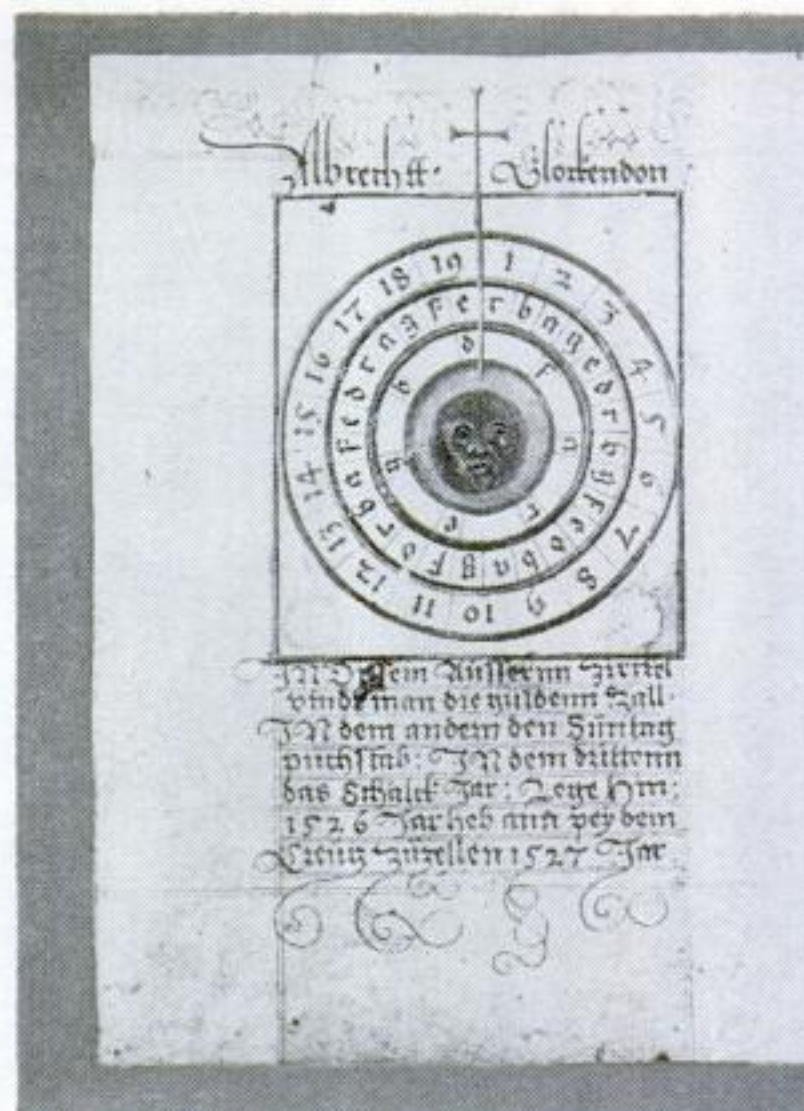 Albrechtt. Glockendon
1 2 3 4 5 6 7 8 9 10 11 12 13 14 15 16 17 18 19
r b a g e d r b g f e d b a g f d r b a f e d r a g f e
d f a r e g b
IN Dissem Aussernn Zirckel
vindt man die guldenn Zall.
IN dem andern den Suntag
puchstab: IN dem drittenn
das Schalck Jar:
1526 Jar heb ann pey dem
Creutz zuzellen 1527 Jar